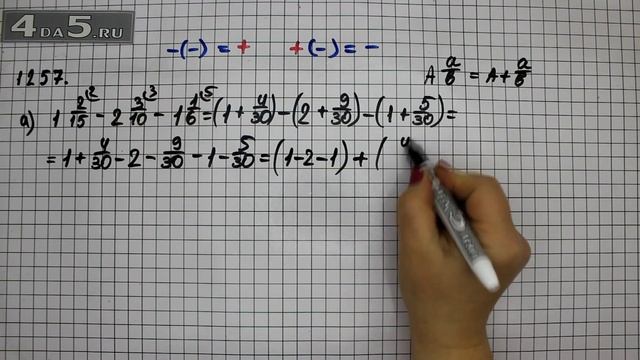 4DA5.RU
-(-) = +    +(-) = -
1257.
A a/b = A + a/b
а) 1 2/15^2 - 2 3/10^3 - 1 1/6^5 = (1 + 4/30) - (2 + 9/30) - (1 + 5/30) =
= 1 + 4/30 - 2 - 9/30 - 1 - 5/30 = (1-2-1) + ( 4